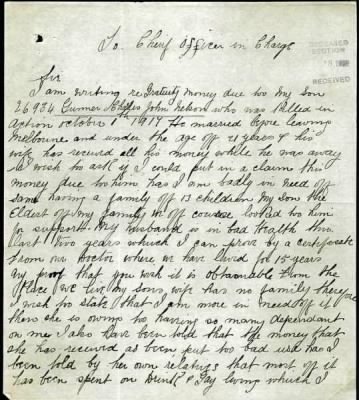 To Cheif Officer in Charge
DECEASED
SECTION
RECEIVED
Sir
I am writing re Gratuity money due too My Son
26934 Gunner John Nelson who was Killed in
action October 1st 1917 He married before leaving
Melbourne and under the age off 21 years & his
wife has received all his money while he was away
I wish too ask if I could put in a claim this
money due too him has I am badly in need off
same having a family off 13 children My Son the
Eldest off My family off course looked too him
for support. My husband is in bad Health this
last two years which I can prove by a certificate
from our Doctor where we have lived for 15 years
any proof that you wish it is obtainable from the
place we live My sons wife has no family therefore
I wish too state that I am more in need off it
then she is owing too having so many dependant
on me I also have been told that the money that
she has received as been put too bad use has I
been told by her own relatives that most off it
has been spent on Drink & Gay living which I